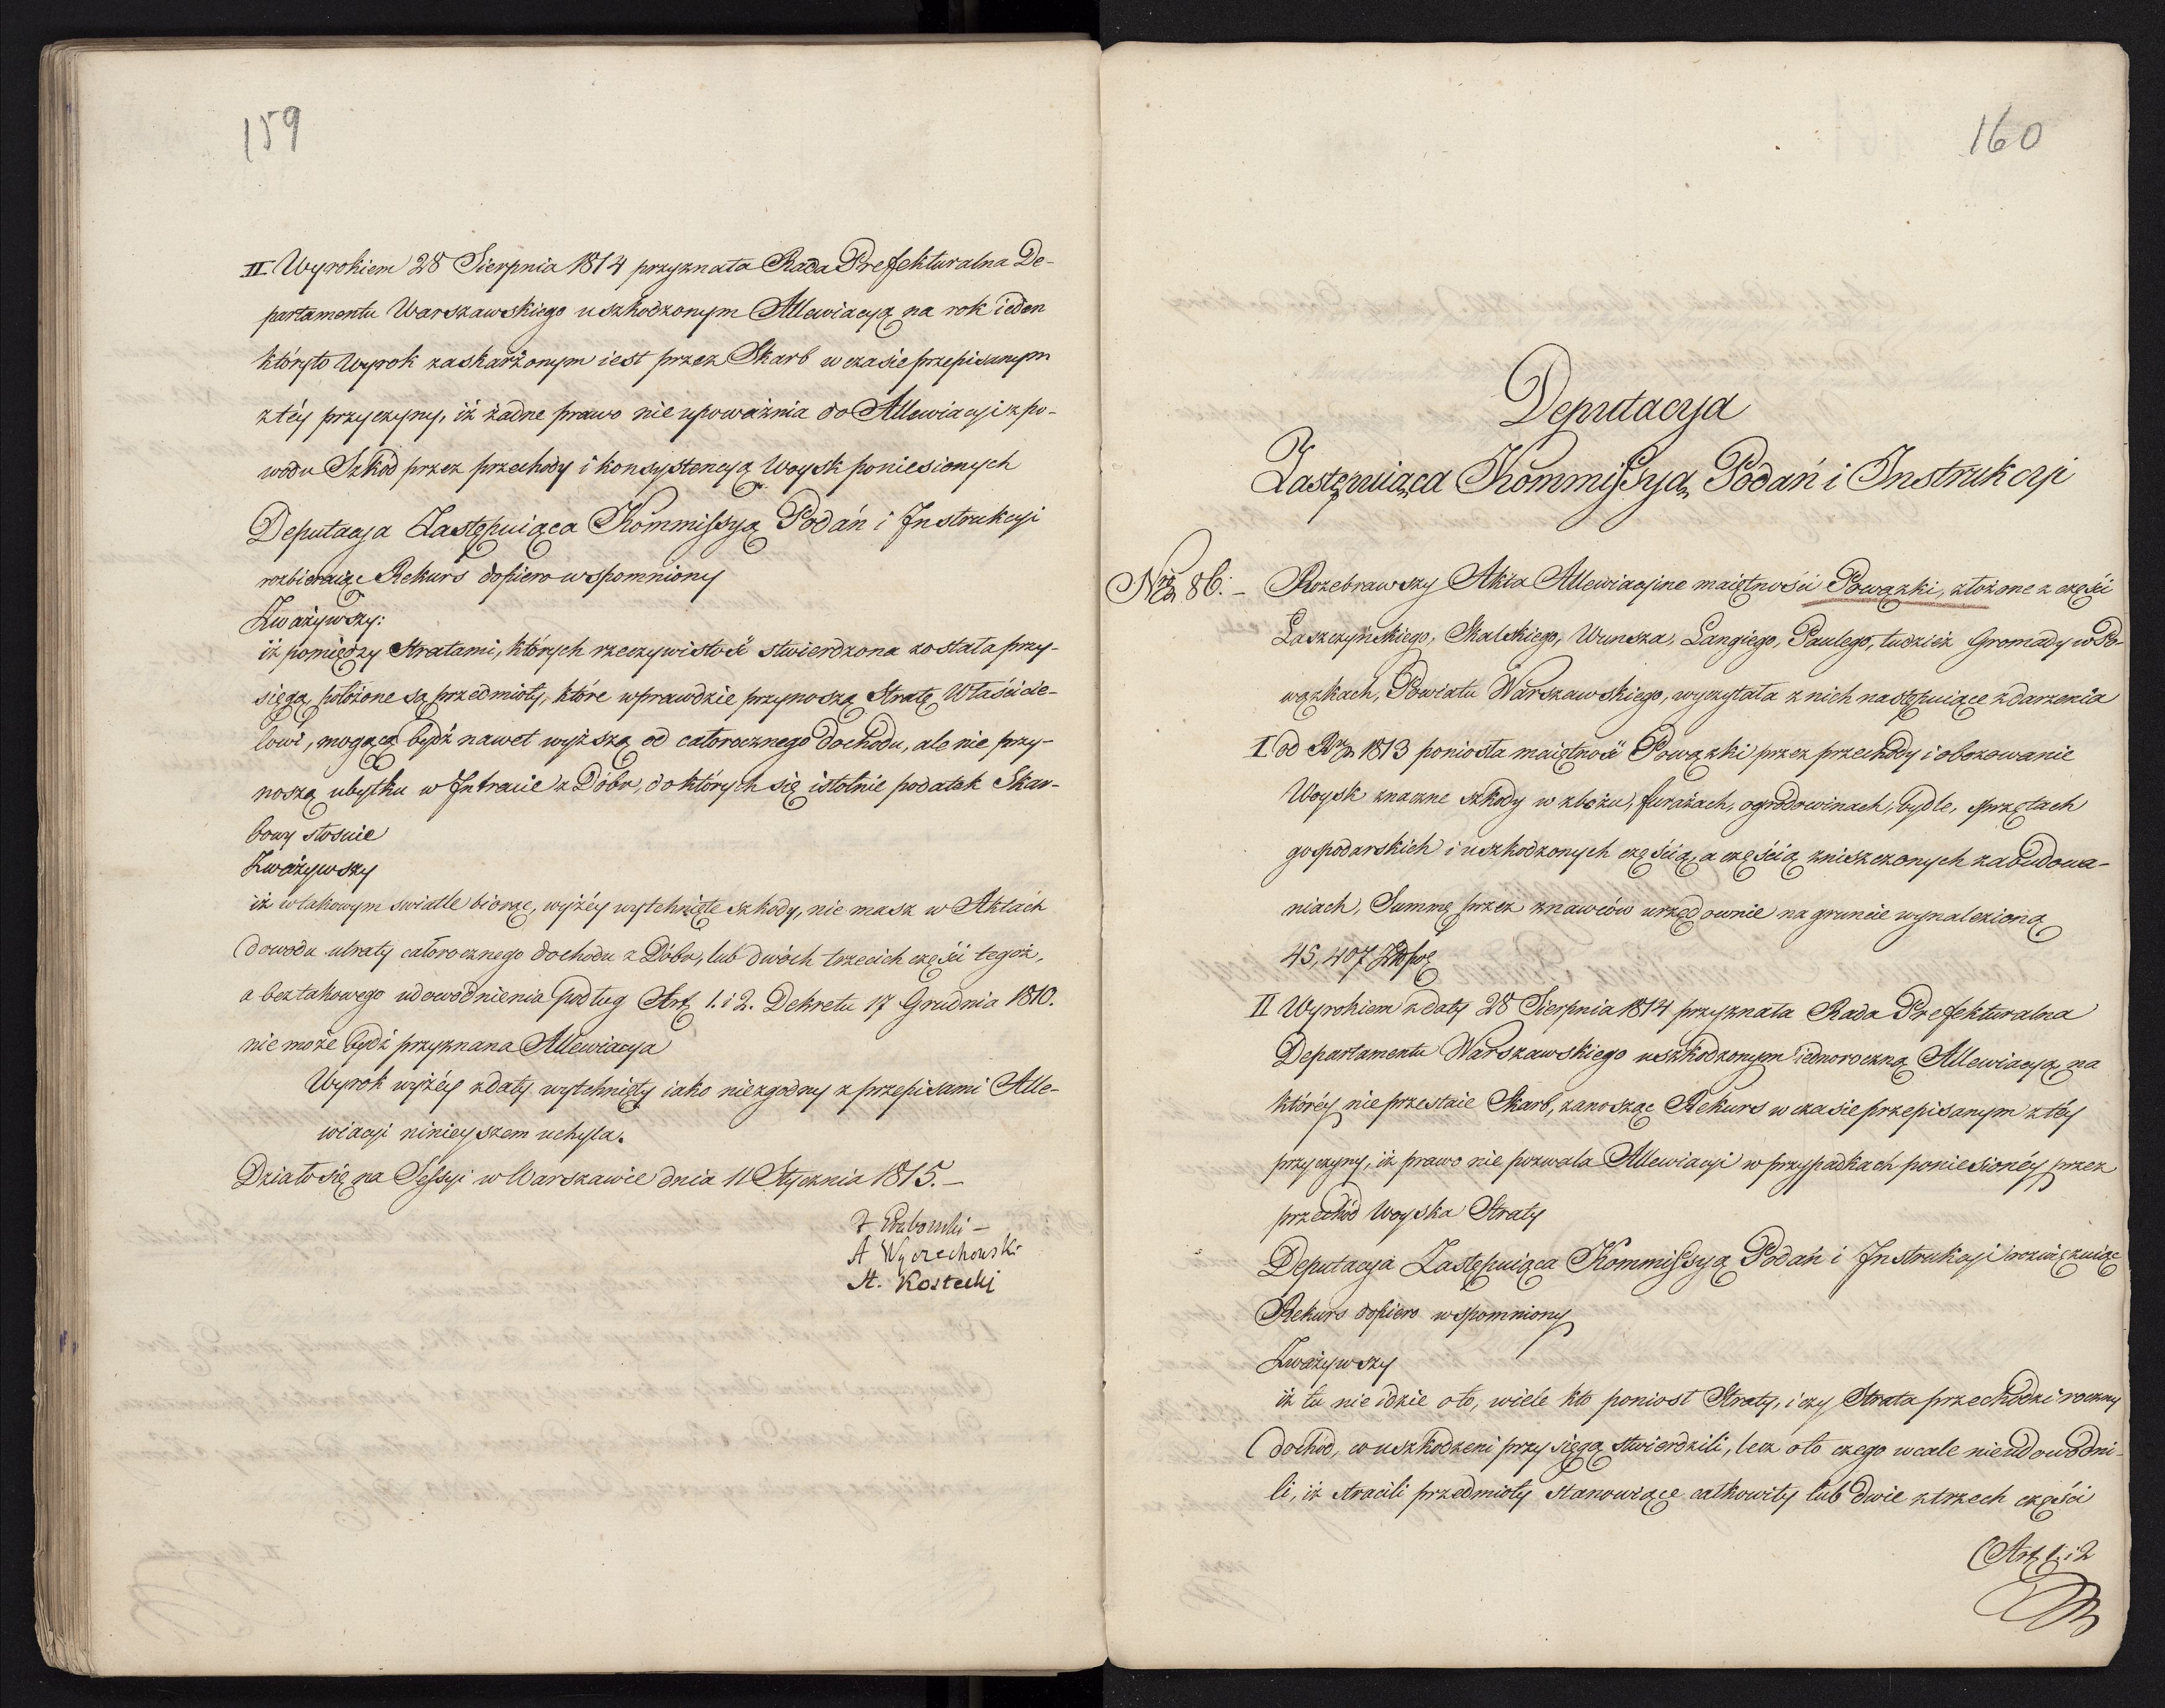 159
II Wyrokiem 28 Sierpnia 1814 przyznała Rada Prefekturalna De-
partamentu Warszawskiego uszkodzonym Allewiacyą na rok ieden
któryto Wyrok zaskarżonym iest przez Skarb w czasie przepisanym
z téy przyczyny, iż żadne prawo nie upoważnia do Allewiacyi z po-
wodu Szkód przez przechody i konsystencyą Woysk poniesionych
Deputacya Zastępuiąca Kommissyą Podań i Instrukcyi
rozbieraiąc Rekurs dopiero wspomniony
Zważywszy:
iż pomiędzy Stratami, których rzeczywistość stwierdzona została przy-
sięgą, położone są przedmioty, które wprawdzie przynoszą Stratę Właścicie-
lowi, mogącą bydź nawet wyższą od całorocznego dochodu, ale nie przy-
noszą ubytku w Intracie z Dóbr, do których się istotnie podatek Skar-
bowy stosuie
Zważywszy
iż w takowym swietle biorąc, wyżéy wytchnięte szkody, nie masz w Aktach
dowodu utraty całorocznego dochodu z Dóbr, lub dwóch trzecich części tegoż,
a bez takowego udowodnienia podług Art. 1. i 2. Dekretu 17 Grudnia 1810.
nie może bydź przyznana Allewiacya
Wyrok wyżéy z daty wytchnięty iako niezgodny z przepisami Alle-
wiacyi ninieyszem uchyla.
Działo się na Sessyi w Warszawie dnia 11 Stycznia 1815. –
A Wyczechowski
St. Kostecki
160
Deputacya
Zastępuiąca Kommissyą Podań i Instrukcyi
Nro 86. – Rozebrawszy Akta Allewiacyine maiętności Powązki, złożone z części
Łaszczyńskiego, Skalskiego, Wunsza, Langiego, Paulego, tudzież Gromady w Po-
wązkach, Powiatu Warszawskiego, wyczytała z nich następuiące zdarzenia
I od Rku 1813 poniosła maiętność Powązki przez przechody i obozowanie
Woysk znaczne szkody w zbożu, furażach, ogrodowinach, bydle, sprzętach
gospodarskich i uszkodzonych częścią, a częścią zniszczonych zabudowa-
niach, Summę przez znawców urzędownie na gruncie wynalezioną
45,407 Złpol
II Wyrokiem z daty 28 Sierpnia 1814 przyznała Rada Prefekturalna
Departamentu Warszawskiego uszkodzonym iednoroczną Allewiacyą, na
któréy nieprzestaie Skarb, zanosząc Rekurs w czasie przepisanym z téy
przyczyny, iż prawo nie pozwala Allewiacyi w przypadkach poniesionéy przez
przechód Woyska Straty
Deputacya Zastępuiąca Kommissyą Podań i Instrukcyi rozwiązuiąc
Rekurs dopiero wspomniony
Zważywszy
iż tu nie idzie o to, wiele kto poniosł Straty, i czy Strata przechodzi roczny
dochód, co uszkodzeni przysięgą stwierdzili, lecz o to czego wcale nieudowodni-
li, iż stracili przedmioty stanowiące całkowity lub dwie z trzech części
Art. 1. i 2